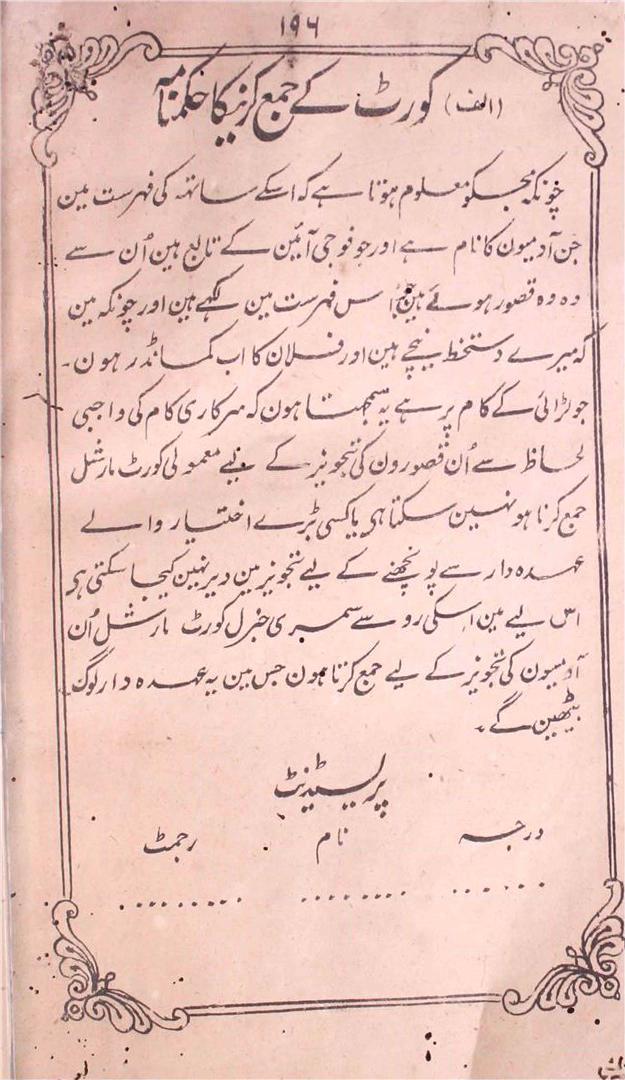 ۱۹۶
(الف) کورٹ کے جمع کرنیکا حکمنامہ
چونکہ مجکو معلوم ہوتا ہے کہ اسکے ساتھہ کی فہرست مین
جن آدمیون کا نام ہے اور جو فوجی آئین کے تابع ہین اُن سے
وہ وہ قصور ہوئے ہین جو اس فہرست مین لکھے ہین اور چونکہ مین
کہ میرے دستخط نیچے ہین اور فلان کا اب کمانڈر ہون۔
جو لڑائی کے کام پر ہے یہ سمجھتا ہون کہ سرکاری کام کی واجبی
لحاظ سے اُن قصورون کی تجویز کے لیے معمولی کورٹ مارشل
جمع کرنا ہو نہین سکتا ہی یا کسی بڑے اختیار والے
عہدہ دار سے پونچھنے کے لیے تجویز مین دیر نہین کیجا سکتی ہی
اس لیے مین اسکی رو سے سمبری جنرل کورٹ مارشل اُن
آدمیون کی تجویز کے لیے جمع کرتا ہون جس مین یہ عہدہ دار لوگ
بیٹھین گے۔
پریسیڈنٹ
درجہ نام رجمٹ
...... ........ .........